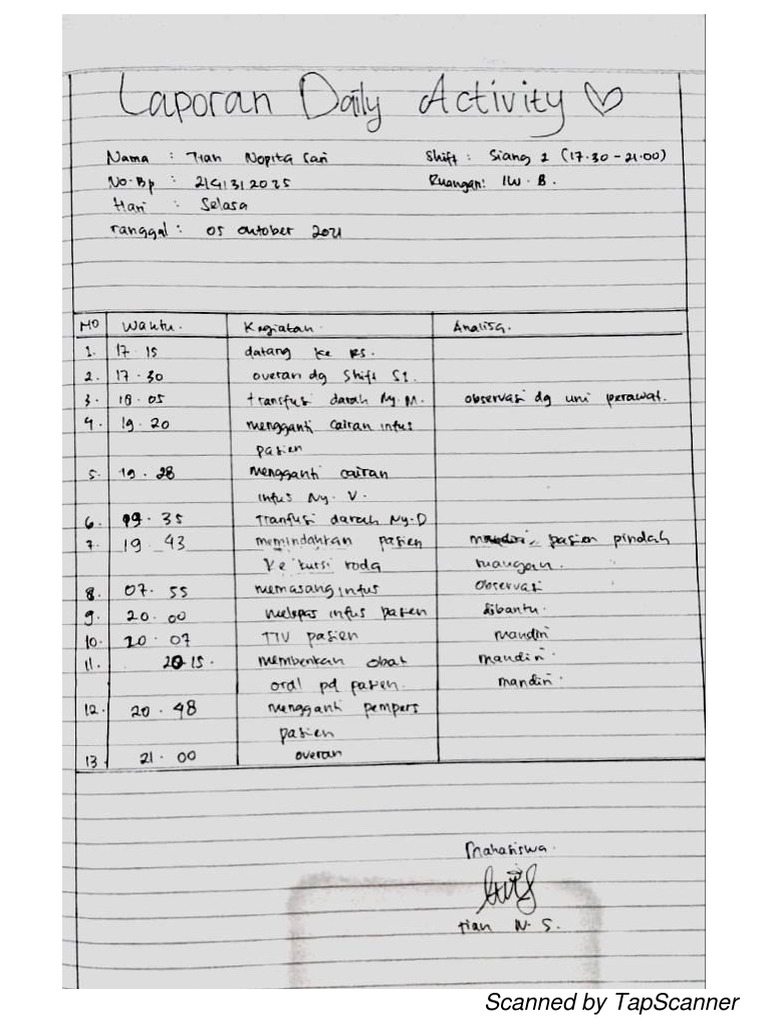 Laporan Daily Activity ♡
Nama : Tian Nopita Sari Shift : Siang 2 (17.30 - 21.00)
No. Bp : 2141312025 Ruangan: IW. B.
Hari : Selasa
Tanggal : 05 Oktober 2021
NO Waktu. Kegiatan. Analisa.
1. 17.15 datang ke RS.
2. 17.30 overan dg Shift S1.
3. 18.05 transfusi darah Ny.M. observasi dg uni perawat.
4. 19.20 mengganti cairan infus
pasien
5. 19.28 mengganti cairan
infus Ny. V.
6. 19.35 Tranfusi darah Ny.D
7. 19.43 memindahkan pasien pasien pindah
ke kursi roda ruangan.
8. 07.55 memasang infus observasi
9. 20.00 melepas infus pasien dibantu.
10. 20.07 TTV pasien mandiri
11. 20.15. memberikan obat mandiri.
oral pd pasien. mandiri.
12. 20.48 mengganti pempers
pasien
13 21.00 overan
Mahasiswa.
Tian N. S.
Scanned by TapScanner